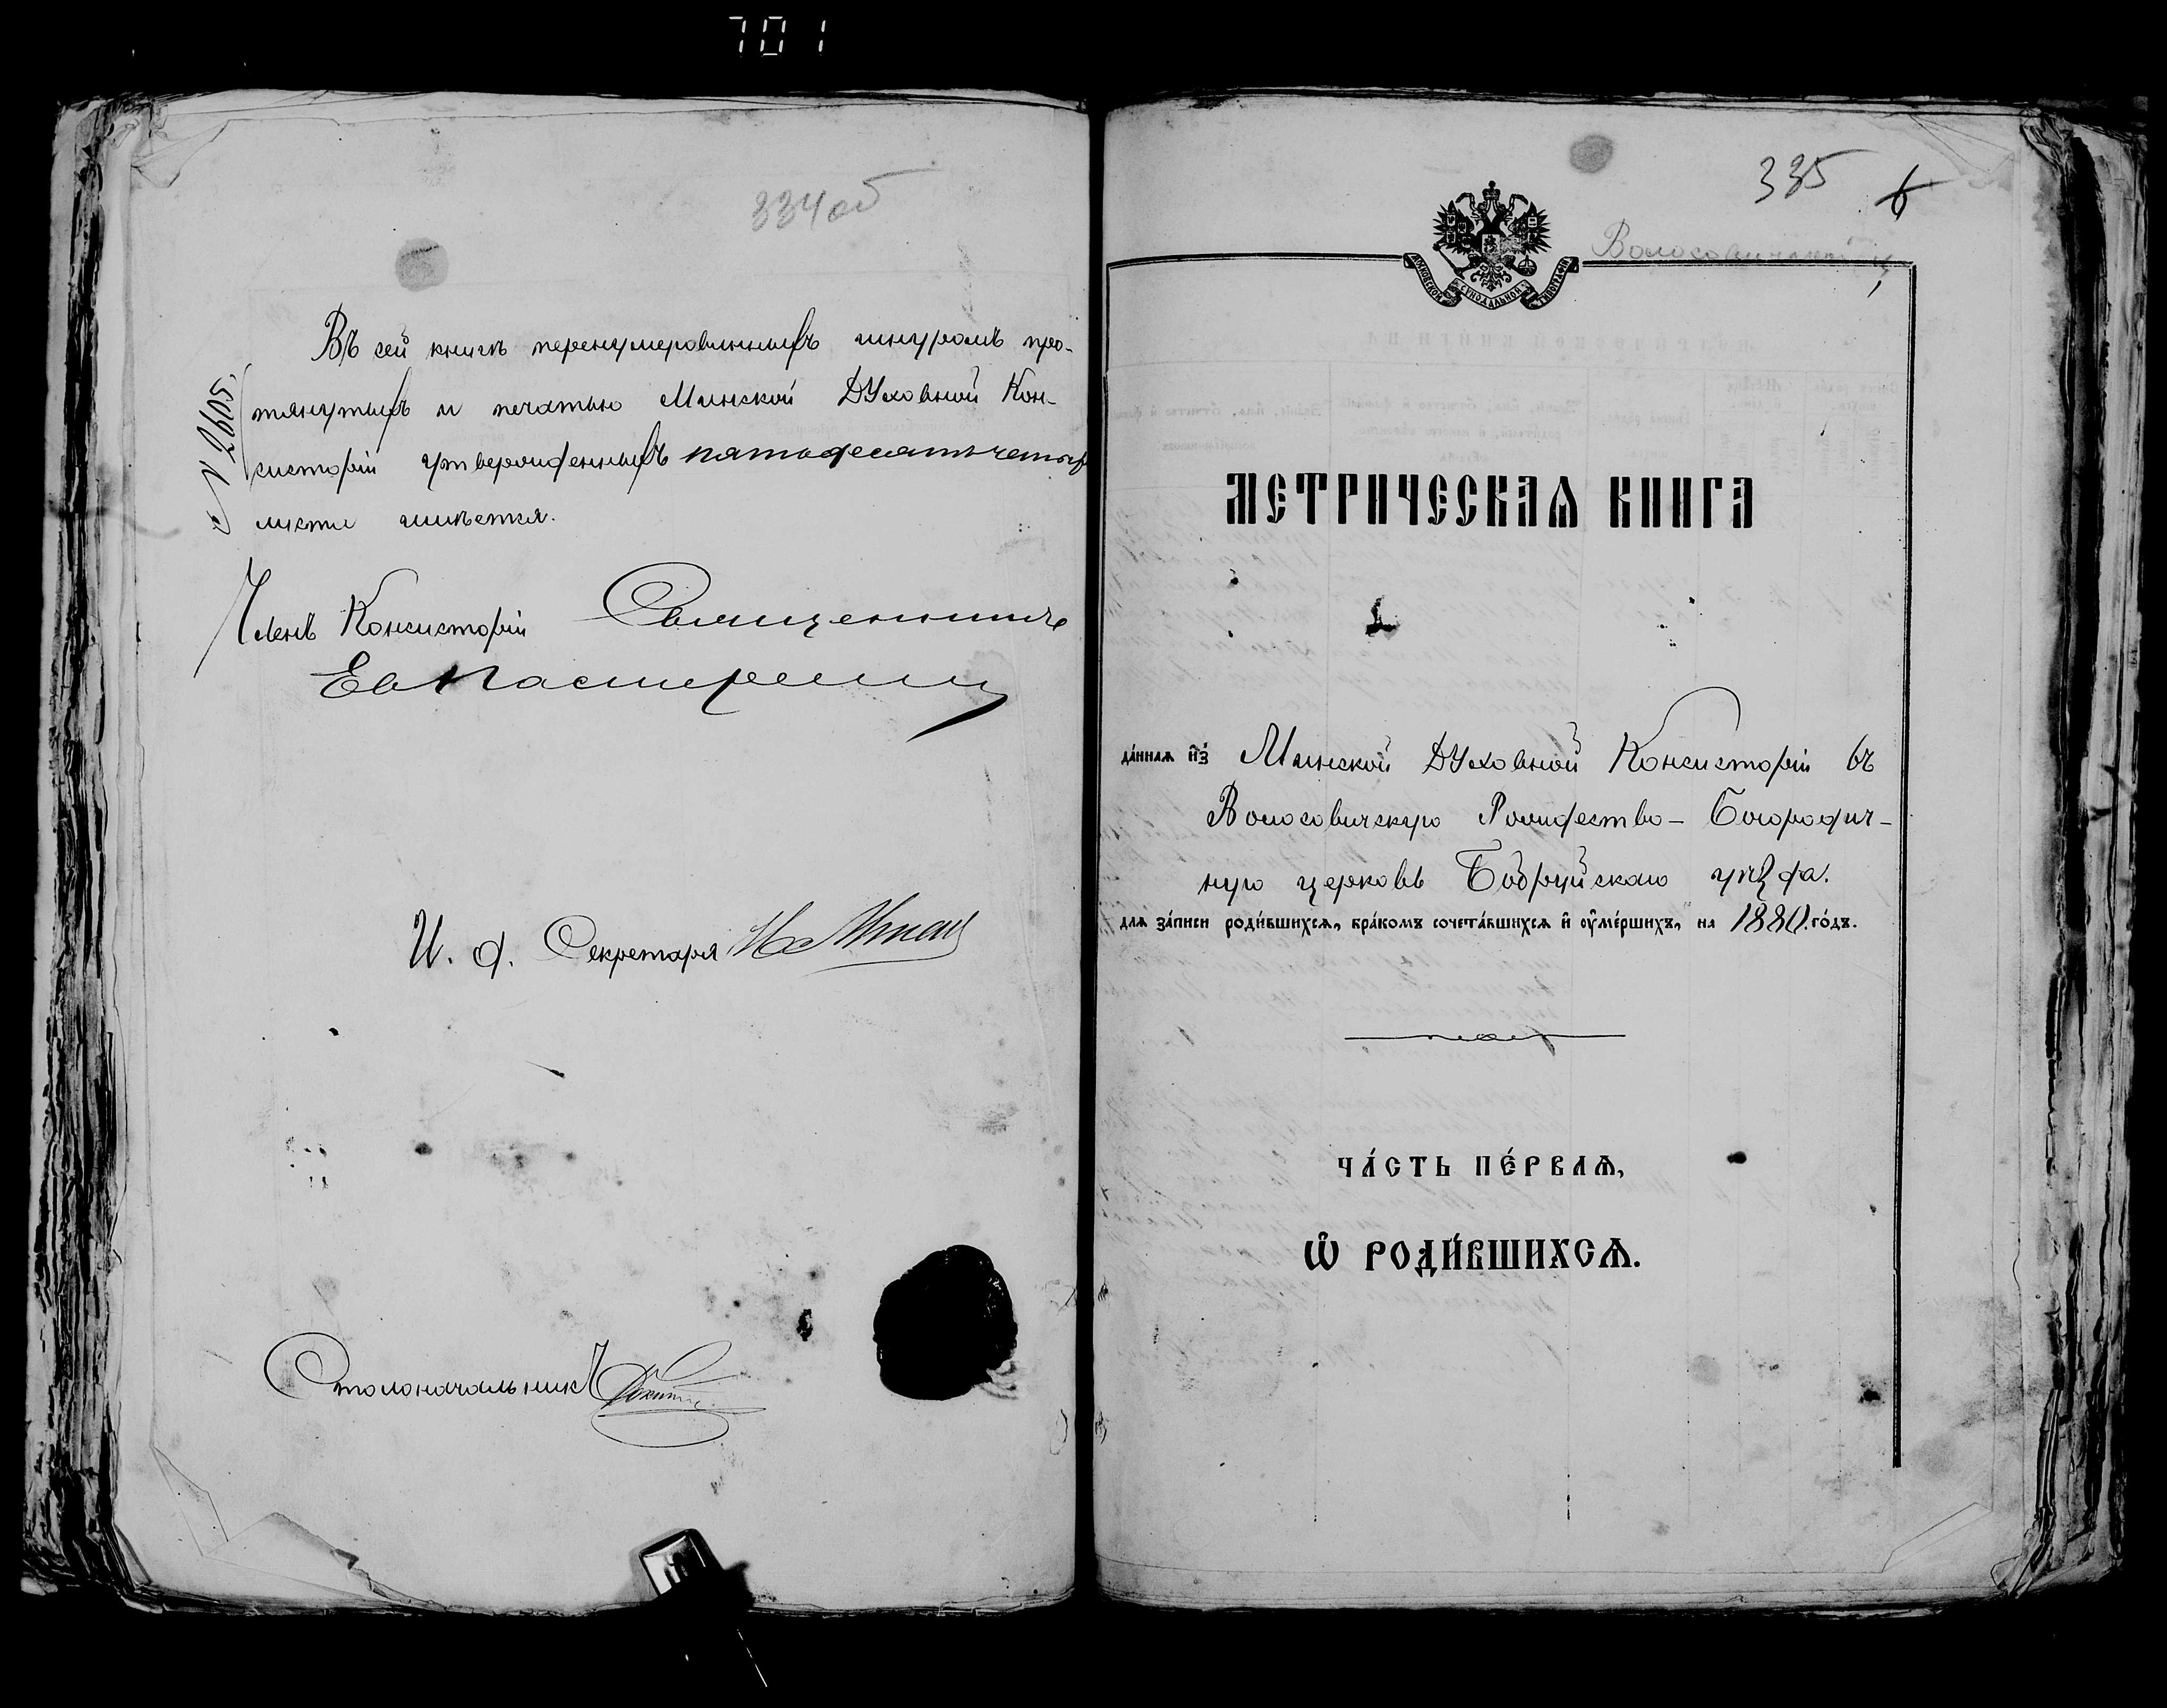 701
334 об
Въ сей книгѣ перенумерованныхъ шнуромъ про-
тянутыхъ и печатью Минской Духовной Кон-
систоріи утвержденныхъ пятьдесятъ четыре
листа имѣется.
№ 2605.
Членъ Консисторіи Священникъ
И. д. Секретаря
Столоначальникъ
335
6
МОСКОВСКОЙ СѴНОДАЛЬНОЙ ТИПОГРАФІИ
МЕТРИЧЕСКАѦ КНИГА
да́ннаѧ и҆з̾ Минской Духовной Консисторіи въ
Волосовичскую Рождество- Богородич-
ную церковь Бобруйскаго уѣзда.
для за́писи роди́вшихсѧ, бра́комъ сочета́вшихсѧ и҆ ѹ҆ме́ршихъ, на 1880 го́дъ.
ЧА́СТЬ ПЕ́РВАѦ,
Ѽ РОДИ́ВШИХСѦ.